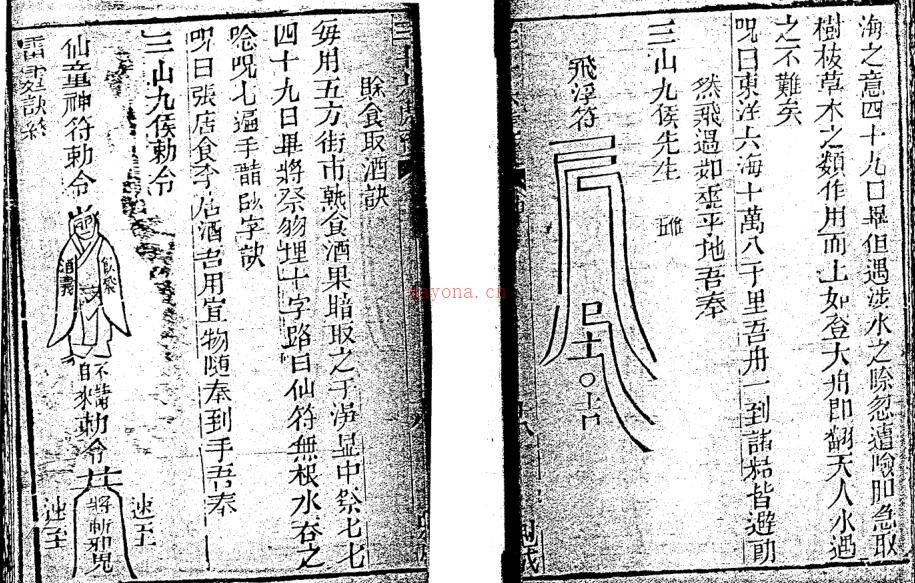 海之意四十九日畢但遇涉水之際忽遭險阻急取
樹枝草木之類作用而上如登大舟即翻天人水過
之不難矣
呪曰東洋大海十萬八千里吾舟一到諸煞皆避
然飛過如乘平地吾奉
三山九侯先生
飛浮符
賒食取酒訣
每用五方街市熟食酒果暗取之于淨显中祭七七
四十九日畢將祭物埋十字路曰仙符無根水吞之
唸呪七遍手訣
呪曰張店食李店酒吾用宜物随奉到手吾奉
三山九侯勅令
仙童神符勅令
不請自來勅令
將斬邪鬼
速至
速至
雷霆訣終
nayona.cn